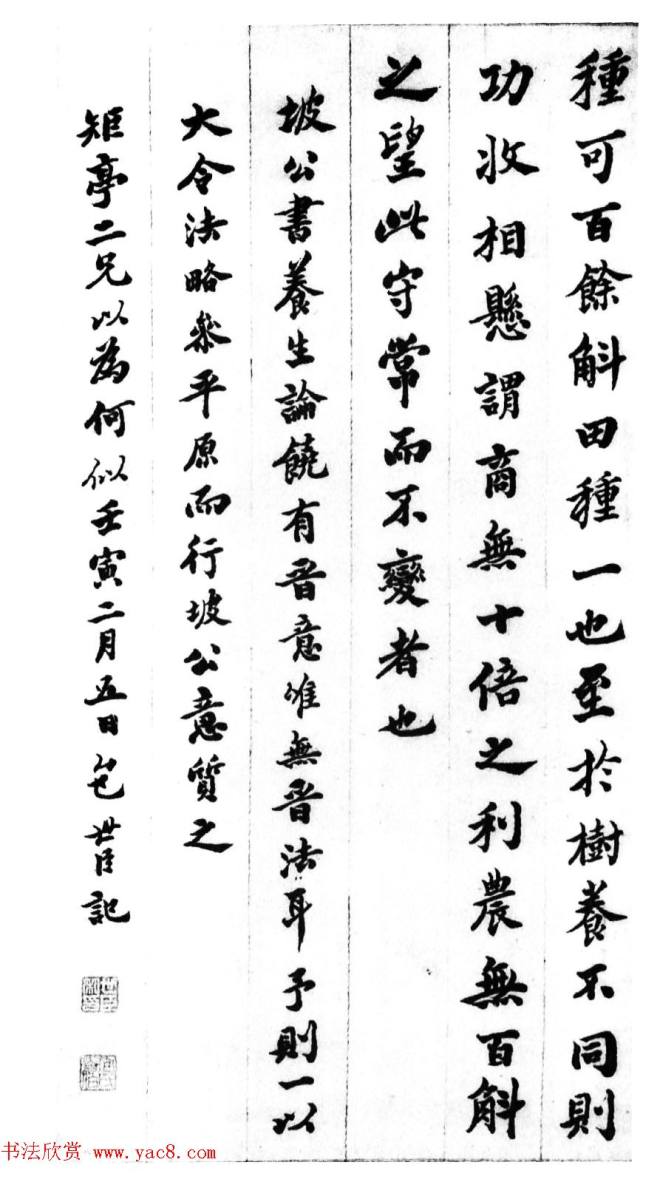 種可百餘斛田種一也至於樹養不同則
功收相懸謂商無十倍之利農無百斛
之望此守常而不變者也
坡公書養生論饒有晉意唯無晉法耳予則一以
大令法略參平原而行坡公意質之
矩亭二兄以為何似壬寅二月五日包世臣記
书法欣赏 www.yac8.com